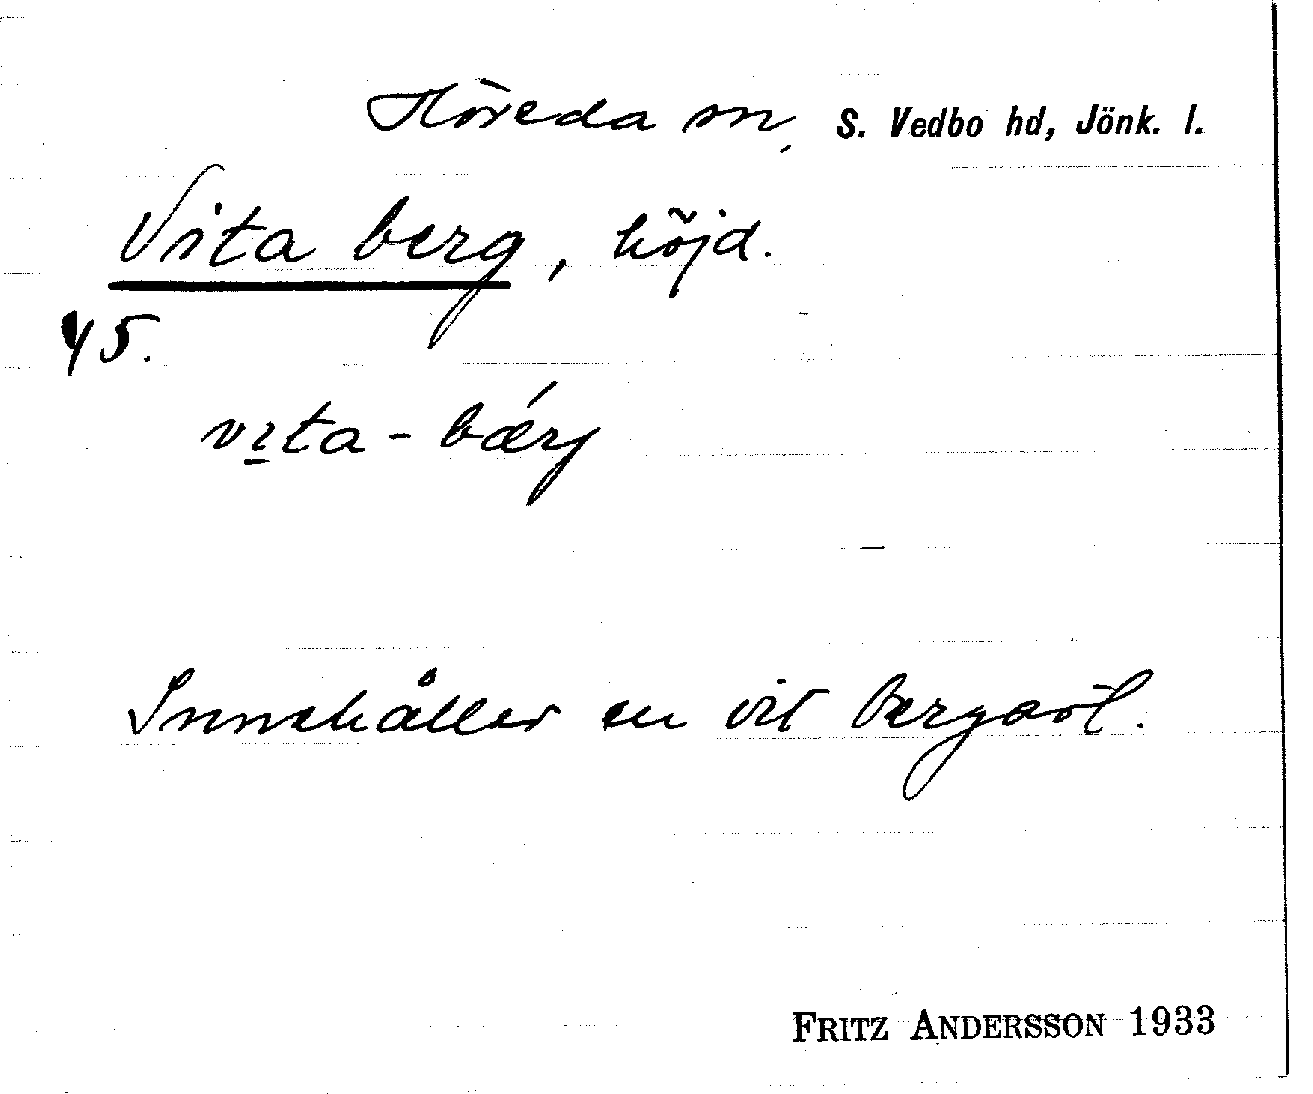 Höreda sn, S. Vedbo hd, Jönk. l.
Vita berg, höjd.
45.
vı̱ta-bǽrj
Innehåller en vit bergart.
FRITZ ANDERSSON 1933